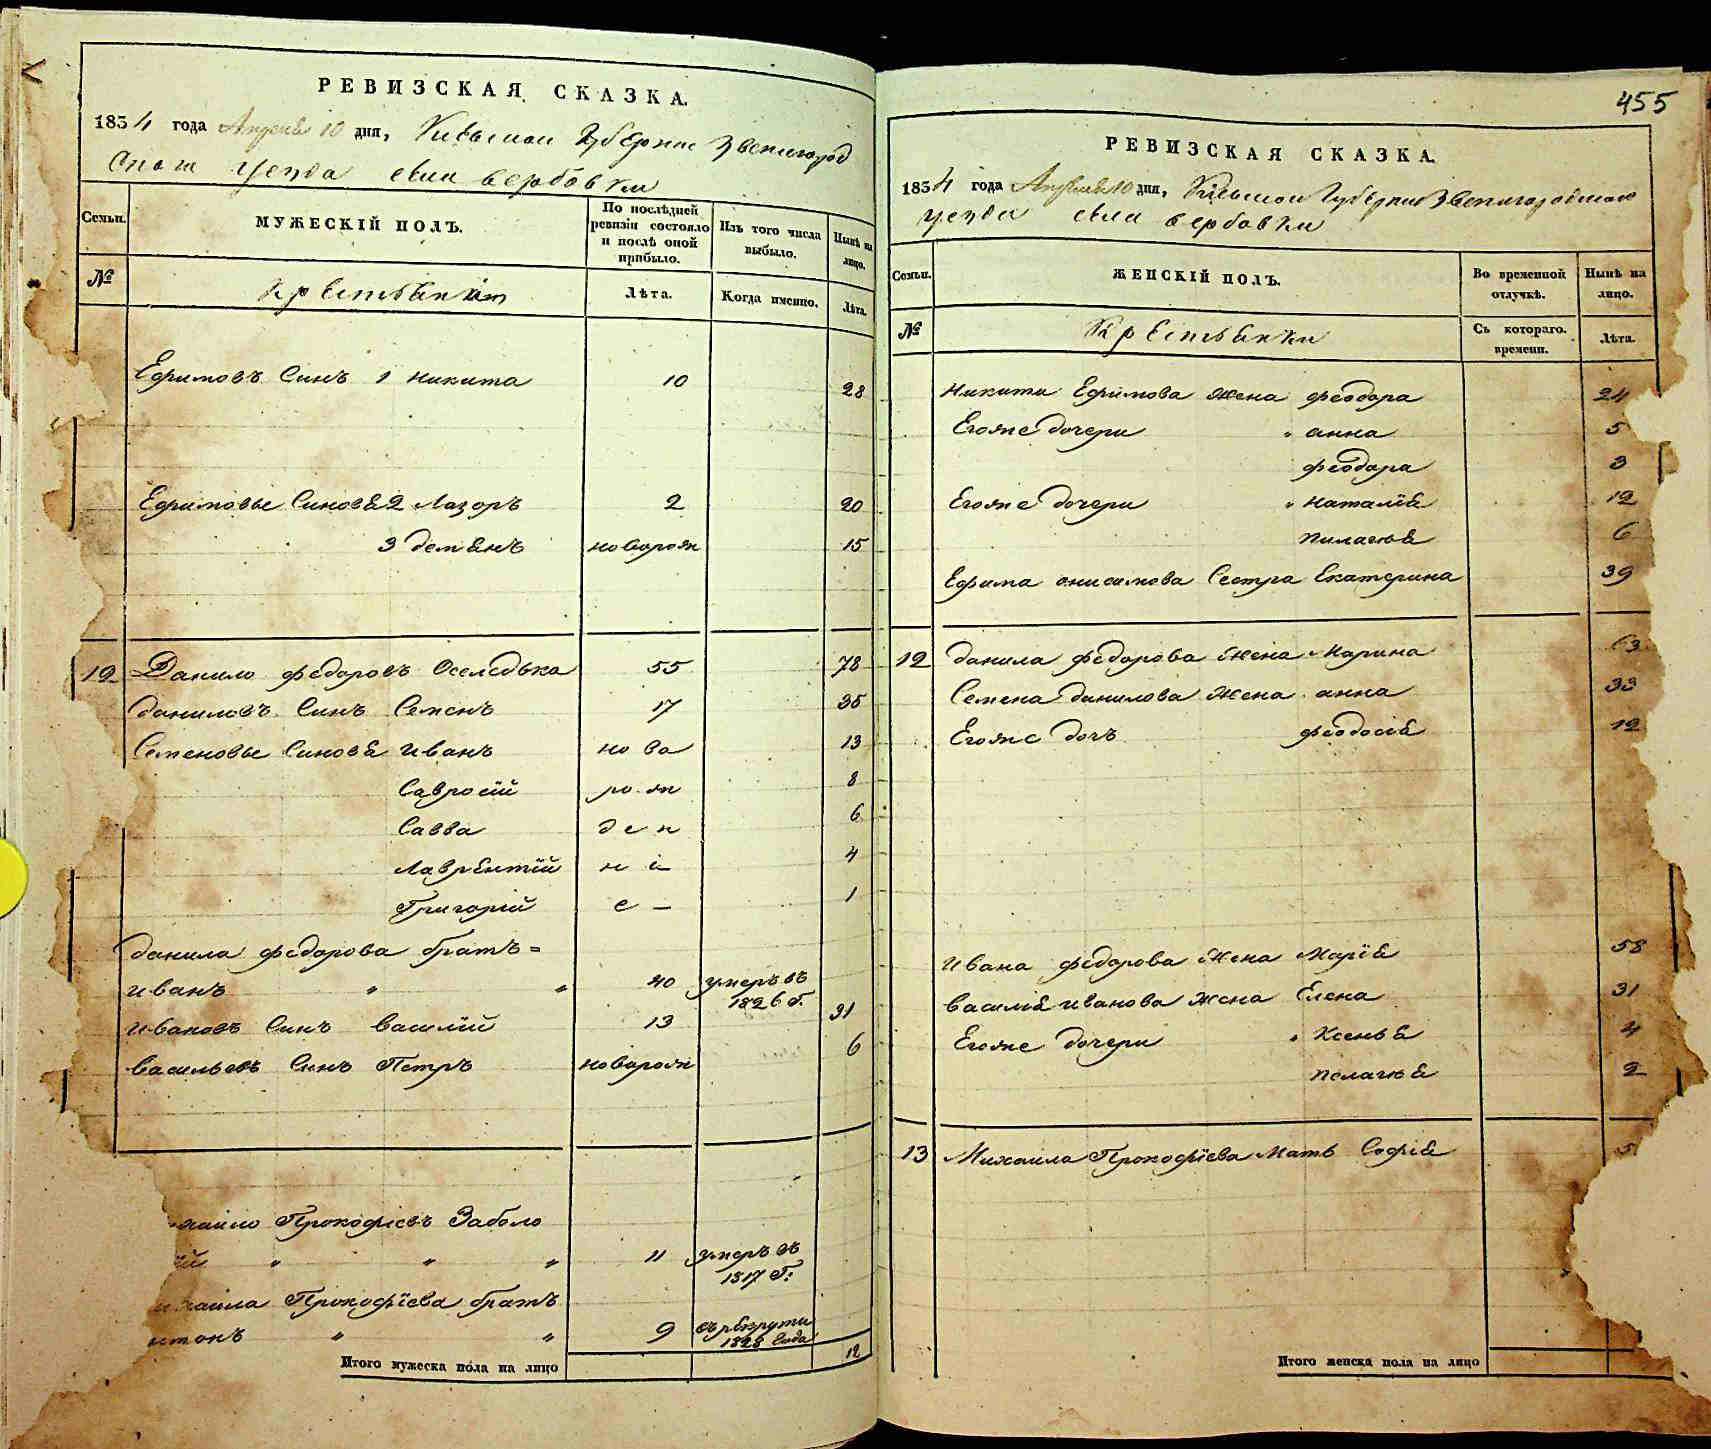 РЕВИЗСКАЯ СКАЗКА.
1834 года Апреля 10 дня, Киевской Губернии Звенигород
ского уезда села вербовки
Семьи.
МУЖЕСКІЙ ПОЛЪ.
По послѣдней ревизіи состояло и послѣ оной прибыло.
Изъ того числа выбыло.
Нынѣ на лицо.
№
Крестьяне
Лѣта.
Когда именно.
Лѣта.
Ефимовъ Синъ 1 никита 10 28
Ефимовы Синовя 2 Лазоръ 2 20
3 демянъ новорож 15
12 Данило федоровъ Оселедька 55 78
даниловъ Синъ Семенъ 17 35
Семеновы Синовя иванъ но во 13
Савросій ро ж 8
Савва д е н 6
Лаврентій н і 4
Григорій е – 1
данила федорова братъ =
иванъ " " 40 умеръ въ 1826 г.
ивановъ Синъ василій 13 31
васильевъ Синъ Петръ новорож 6
хаило Прокофіевъ Заболо
ій " " " 11 умеръ въ 1817 г:
хаила Прокофіева братъ
нтонъ " " 9 въ рекрути 1828 года
Итого мужеска пола на лицо 12
455
РЕВИЗСКАЯ СКАЗКА.
1834 года Апреля 10 дня, Киевской Губернии Звенигородского
уезда села вербовки
Семьи.
ЖЕНСКІЙ ПОЛЪ.
Во временной отлучкѣ.
Нынѣ на лицо.
№
Крестьянки
Съ котораго. времени.
Лѣта.
никити Ефимова жена феодора 24
Егоже дочери " анна 5
феодора 3
Егоже дочери " наталія 12
пилагія 6
Ефима онисимова Сестра Екатерина 39
12 данила федорова жена Марина 63
Семена данилова жена анна 33
Егоже дочъ феодосія 12
ивана федорова жена Марія 58
василія иванова жена Елена 31
Егоже дочери " Ксенья 4
пелагія 2
13 Михаила Прокофіева Мать Софія 5
Итого женска пола на лицо